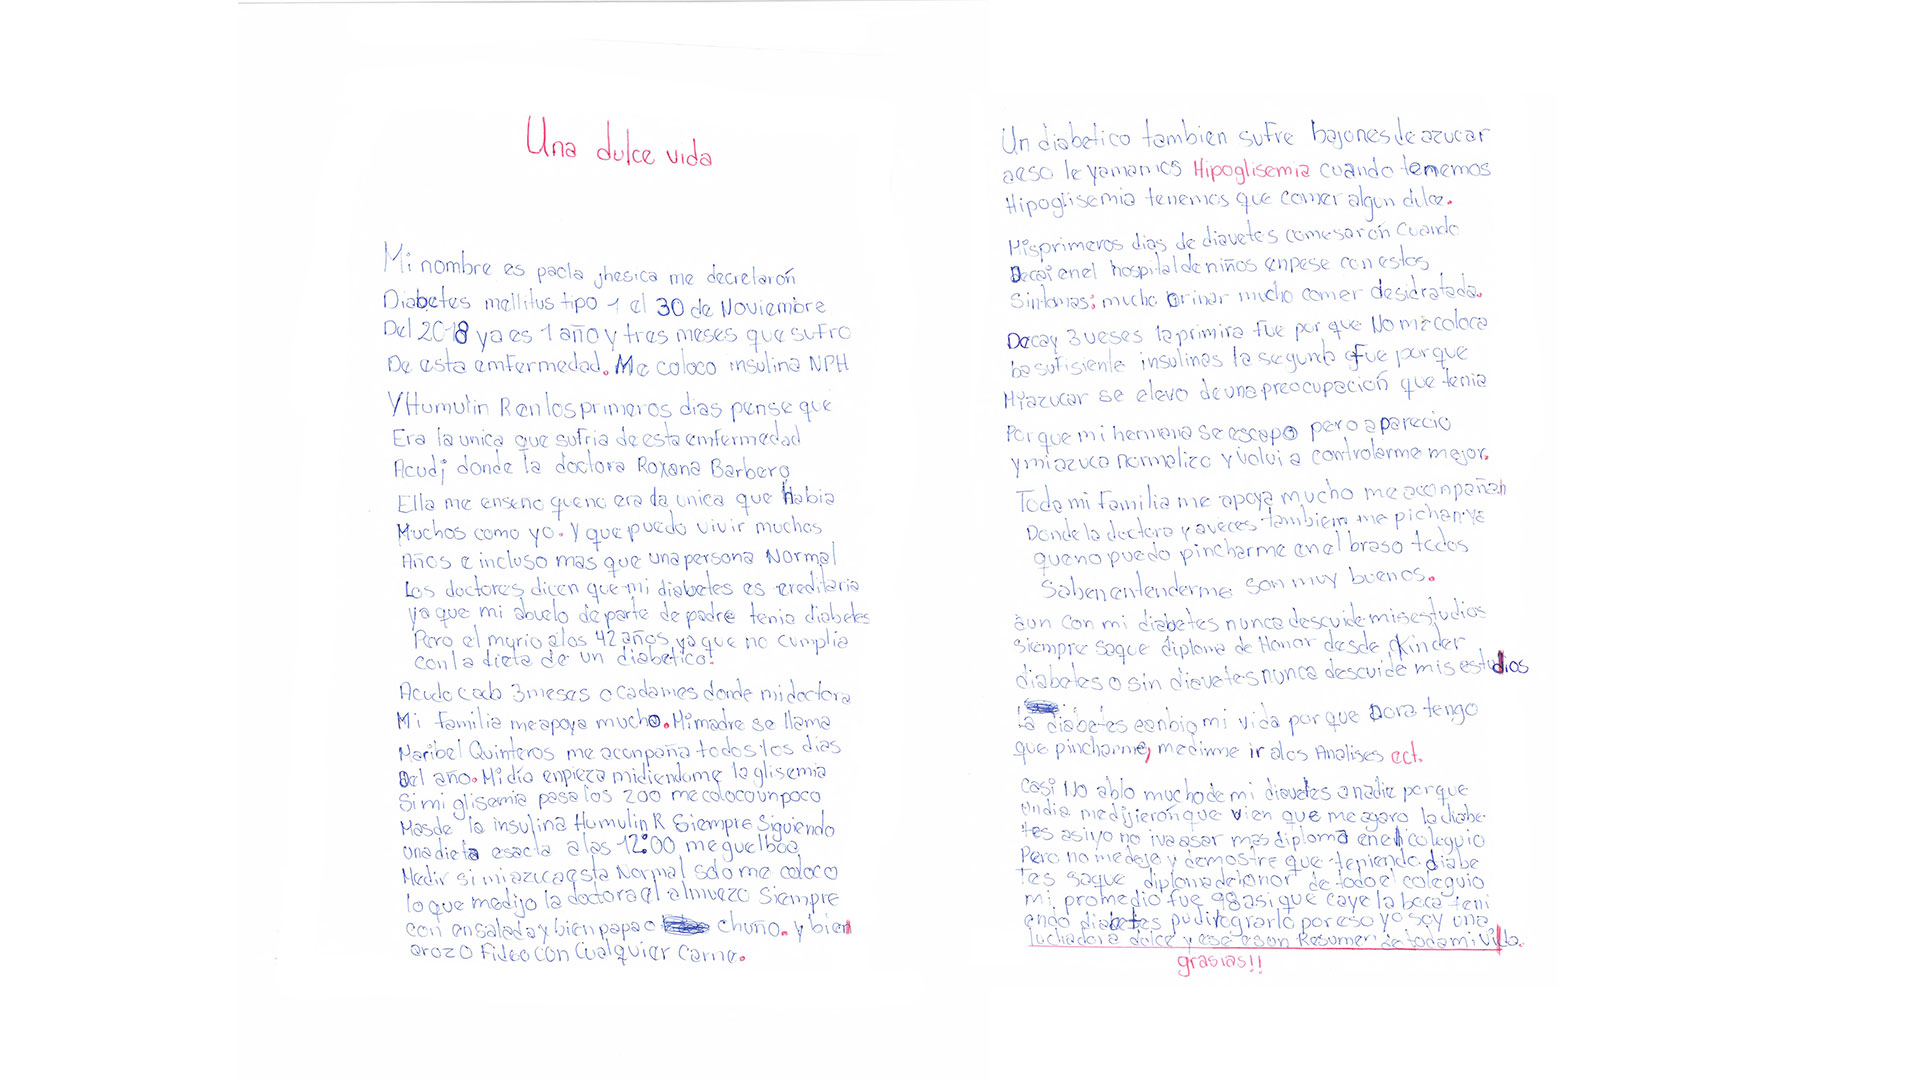 Una dulce vida
Mi nombre es paola jhesica me decretarón
Diabetes mellitus tipo 1 el 30 de Noviembre
Del 2018 ya es 1 año y tres meses que sufro
De esta emfermedad. Me coloco insulina NPH
Y Humulin R en los primeros dias pense que
Era la unica que sufria de esta emfermedad
Acudi donde la doctora Roxana Barbero
Ella me enseno que no era la unica que Habia
Muchos como yo. Y que puedo vivir muchos
Años e incluso mas que una persona Normal
Los doctores dicen que mi diabetes es ereditaria
ya que mi abuelo de parte de padre tenia diabetes
Pero el myrio a los 42 años ya que no cumplia
con la dieta de un diabetico.
Acudo cada 3 meses o cada mes donde mi doctora
Mi familia me apoya mucho. Mi madre se llama
Maribel Quinteros me aconpaña todos los dias
Del año. Mi dia enpieza midiendome la glisemia
Si mi glisemia pasa los 200 me coloco un poco
Mas de la insulina Humulin R Siempre Siguiendo
una dieta esacta a las 12:00 me guelboa
Medir si mi azuca esta Normal solo me coloco
lo que me dijo la doctora el almuezo Siempre
con ensalada y bien papa o chuño. y bien
arozo Fideo con Cualquier Carne.
Un diabetico tambien sufre bajones de azucar
a eso le yamamos Hipoglisemia cuando tenemos
Hipoglisemia tenemos que comer algun dulce.
Mis primeros dias de diavetes comesarón Cuando
Decai en el hospital de niños enpese con estos
Sintomas: mucho orinar mucho comer desidratada.
Decay 3 veses la primira fue por que No me coloca
ba sufisiente insulinas la segunda fue porque
Mi azucar se elevo de una preocupación que tenia
Por que mi hermana se escapo pero aparecio
y mi azuca normalizo y volvi a controlarme mejor.
Toda mi familia me apoya mucho me aconpañan
Donde la doctora y aveces tambiem me pichan ya
que no puedo pincharme en el braso todos
Saben entenderme son muy buenos.
aun con mi diabetes nunca descuide mis estudios
siempre saque diploma de Honor desde kinder
diabetes o sin diavetes nunca descuide mis estudios
la diabetes canbio mi vida por que aora tengo
que pincharme, medirme ir alos Analises ect.
Casi No ablo mucho de mi diavetes a nadie porque
un dia me dijierón que vien que me agaro la diabe
tes asi yo no iva asar mas diploma en el coleguio
Pero no me deje y demostre que teniendo diabe
tes saque diploma de onor de todo el coleguio
mi promedio fue 98 asi que caye la boca teni
endo diabetes pudi lograrlo por eso yo soy una
luchadora dulce y ese es un Resumen de toda mi vida.
grasias!!